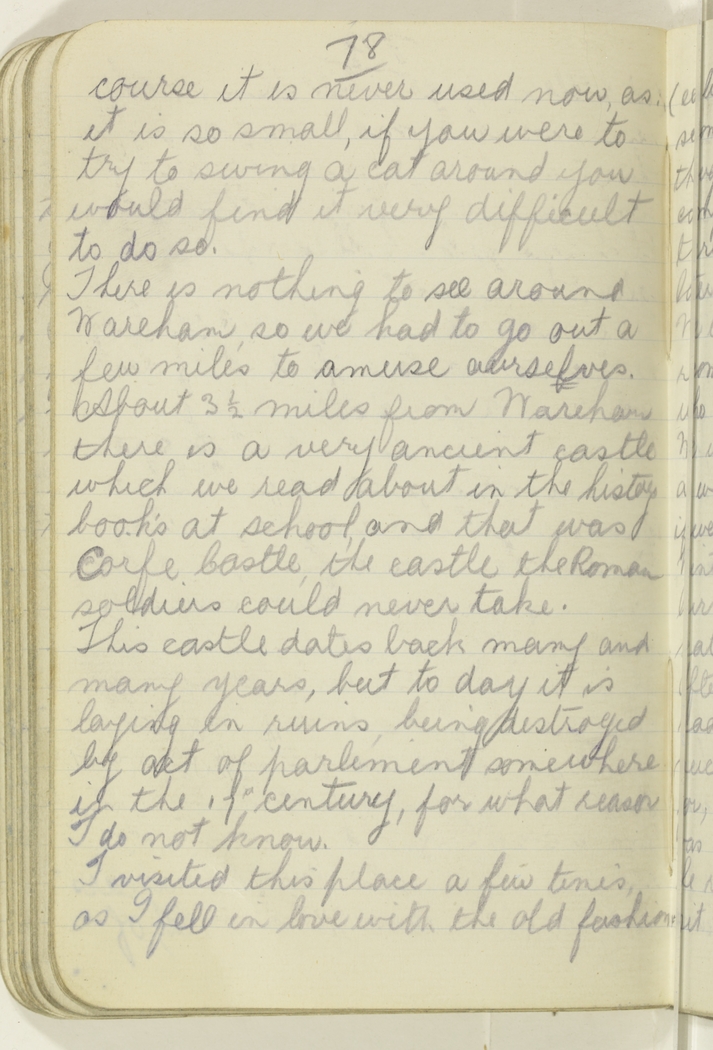 78
course it is never used now, as
it is so small, if you were to
try to swing a cat around you
would find it very difficult
to do so.
There is nothing to see around
Wareham, so we had to go out a
few miles to amuse ourselves.
About 3½ miles from Wareham
there is a very ancient castle
which we read about in the history
books at school, and that was
Corfe Castle, the castle the Roman
soldiers could never take.
This castle dates back many and
many years, but to day it is
laying in ruins, being destroyed
by act of parlement somewhere
in the 17" century, for what reason
I do not know.
I visited this place a few times,
as I fell in love with the old fashion